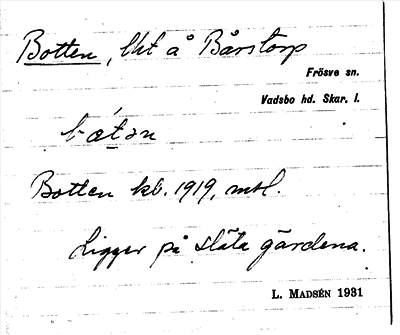 Botten, lht å Bårstorp
Frösve sn.
Vadsbo hd. Skar. l.
bòtən
Botten kb. 1919, mtl.
Ligger på släta gärdena.
L. MADSÉN 1931